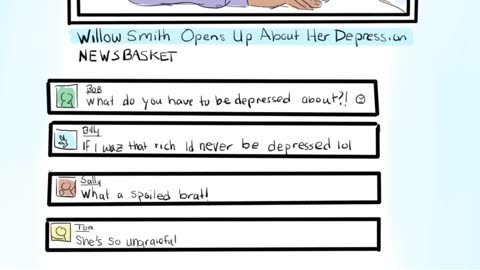 Willow Smith Opens Up About Her Depression
NEWSBASKET
Bob
What do you have to be depressed about?!
Billy
If I waz that rich Id never be depressed lol
Sally
What a spoiled brat!
Tom
She's so ungrateful